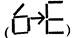 (6→E)